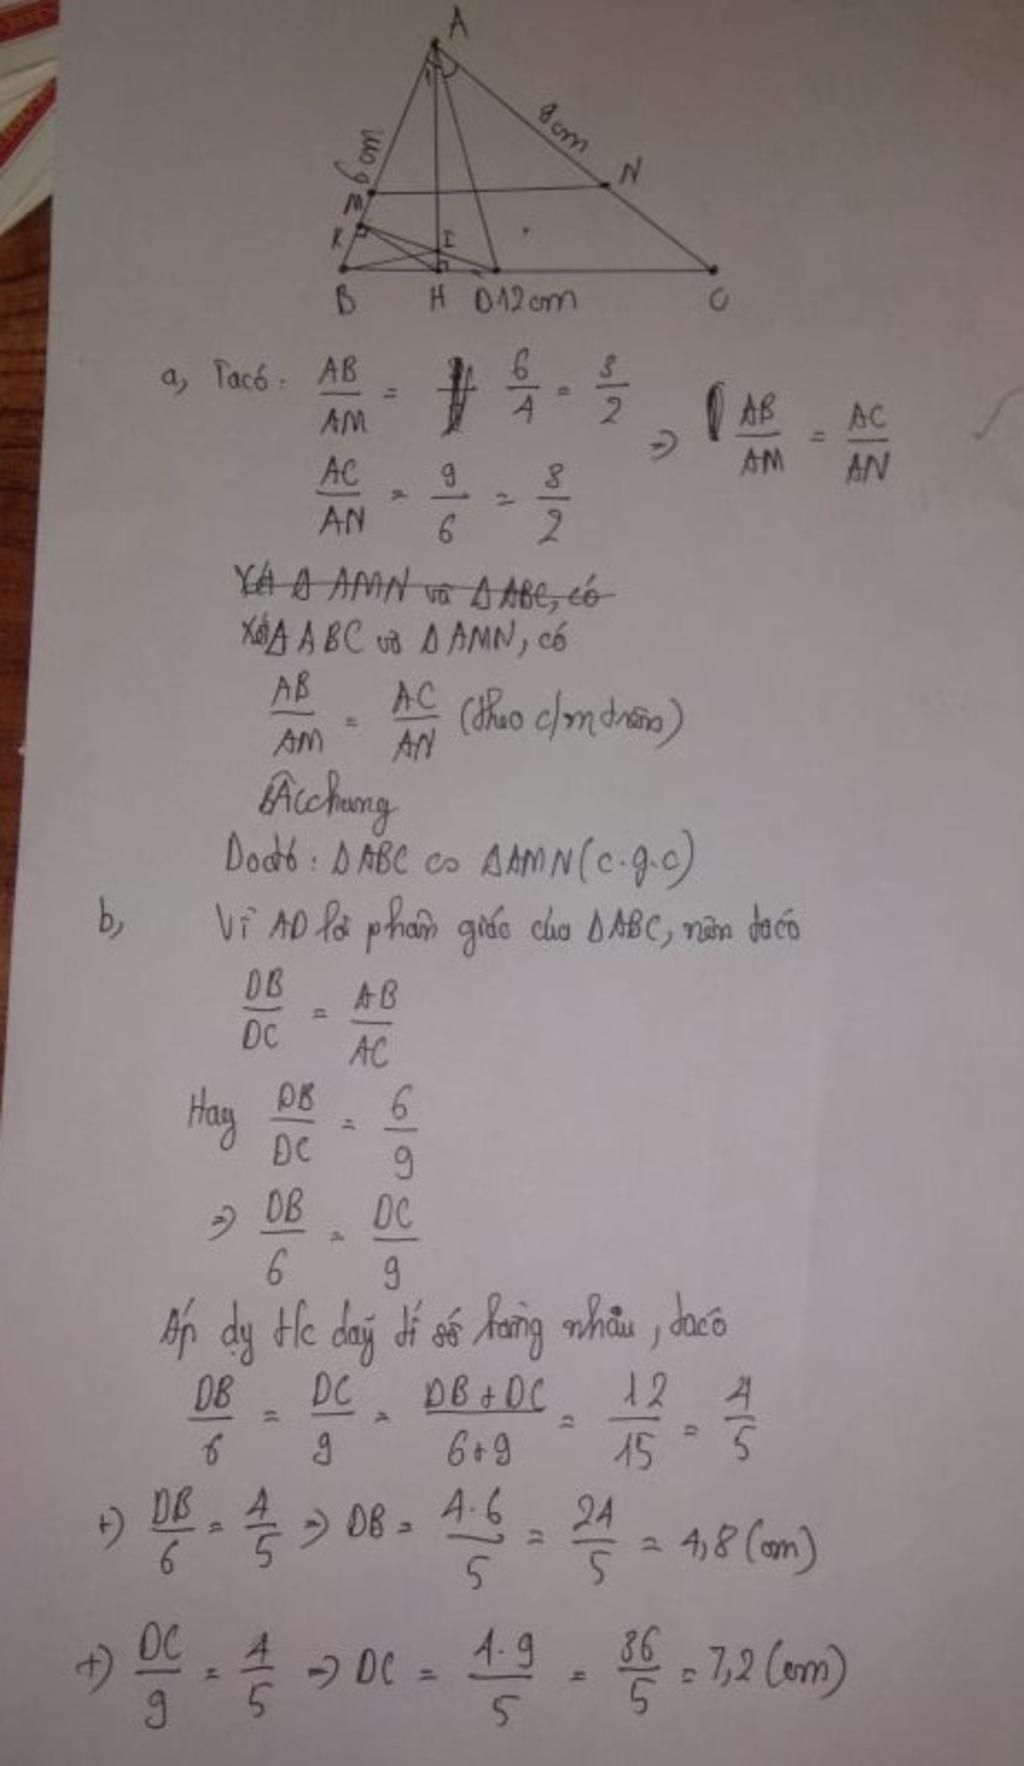 A
6cm
9cm
M
N
K
I
B H D 12cm C
a, Ta có: AB/AM = 6/4 = 3/2
AC/AN = 9/6 = 3/2
=> AB/AM = AC/AN
Xét Δ AMN và Δ ABC, có
Xét Δ ABC và Δ AMN, có
AB/AM = AC/AN (theo c/m trên)
Â chung
Do đó: Δ ABC ∽ Δ AMN (c.g.c)
b, Vì AD là phân giác của Δ ABC, nên ta có
DB/DC = AB/AC
Hay DB/DC = 6/9
=> DB/6 = DC/9
Áp dụ t/c dãy tỉ số bằng nhau, ta có
DB/6 = DC/9 = DB + DC/6+9 = 12/15 = 4/5
+) DB/6 = 4/5 => DB = 4.6/5 = 24/5 = 4,8 (cm)
+) DC/9 = 4/5 => DC = 4.9/5 = 36/5 = 7,2 (cm)